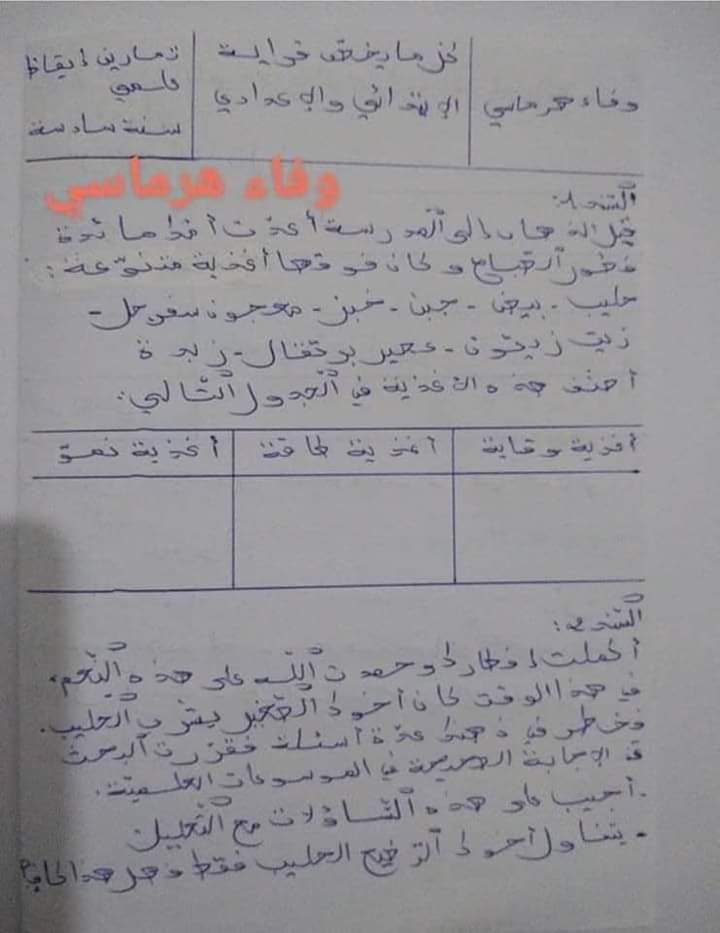 وفاء هرماسي
كل ما يخص قراية
الابتدائي والاعدادي
تمارين ايقاظ
علمي
سنة سادسة
وفاء هرماسي
السند 1:
قبل الذهاب الى المدرسة أعدت أمي مائدة
فطور الصباح وكان فوقها أغذية متنوّعة:
حليب - بيض - جبن - خبز - معجون سفرجل -
زيت زيتون - عصير برتقال - زبدة
أصنف هذه الأغذية في الجدول التّالي:
أغذية وقاية
أغذية طاقة
أغذية نموّ
السند 2:
أكملت إفطاري وحمدت اللّه على هذه النّعم،
في هذا الوقت كان أخوك الصّغير يشرب الحليب.
فخطر في ذهنك عدّة أسئلة فقرّرت البحث
عن الإجابة الصحيحة في الموسوعات العلميّة.
- أجيب على هذه التّساؤلات مع التّعليل
- يتناول أخوك الرّضيع الحليب فقط فهل هذا كاف؟